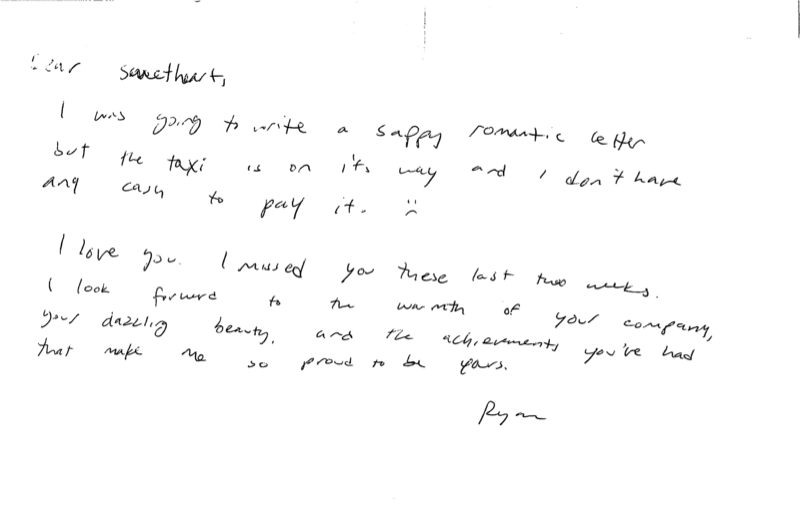 Dear sweetheart,
I was going to write a sappy romantic letter
but the taxi is on it's way and I don't have
any cash to pay it. :(
I love you. I missed you these last two weeks.
I look forward to the warmth of your company,
your dazzling beauty, and the achievements you've had
that make me so proud to be yours.
Ryan